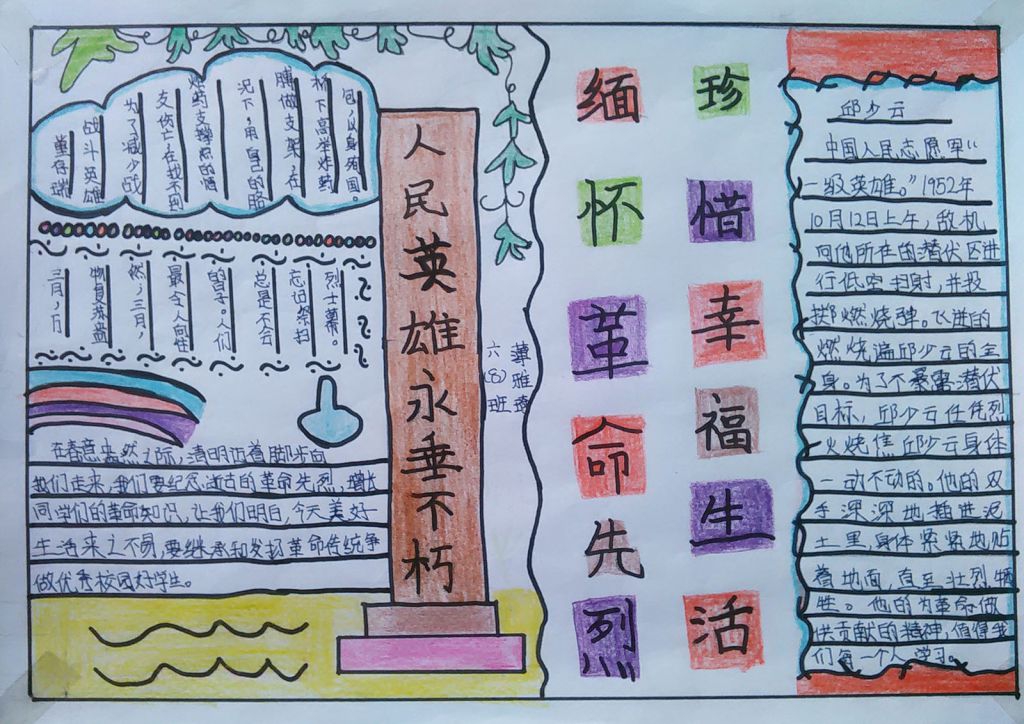 董存瑞
战斗英雄
为了减少战
友伤亡,在找不到
药支撑点的情
况下,用自己的胳
膊做支架,在
桥下高举炸药
包,以身殉国。
三月,万
物复苏盎
然,三月,
最令人向往
的日子。人们
总是不会
忘记祭扫
烈士墓。
在春意盎然之际,清明迈着脚步向
我们走来,我们要纪念逝去的革命先烈,增长
同学们的革命知识,让我们明白,今天美好
生活来之不易,要继承和发扬革命传统争
做优秀校园好学生。
人民英雄永垂不朽
六(8)班
雅
缅怀革命先烈
珍惜幸福生活
邱少云
中国人民志愿军“
一级英雄。”1952年
10月12日上午,敌机
向他所在的潜伏区进
行低空扫射,并投
掷燃烧弹。飞迸的
燃烧遍邱少云的全
身。为了不暴露潜伏
目标,邱少云任凭烈
火烧焦邱少云身体
一动不动的。他的双
手深深地插进泥
土里,身体紧紧地贴
着地面,直至壮烈牺
牲。他的为革命做
供贡献的精神,值得我
们每一个人学习。